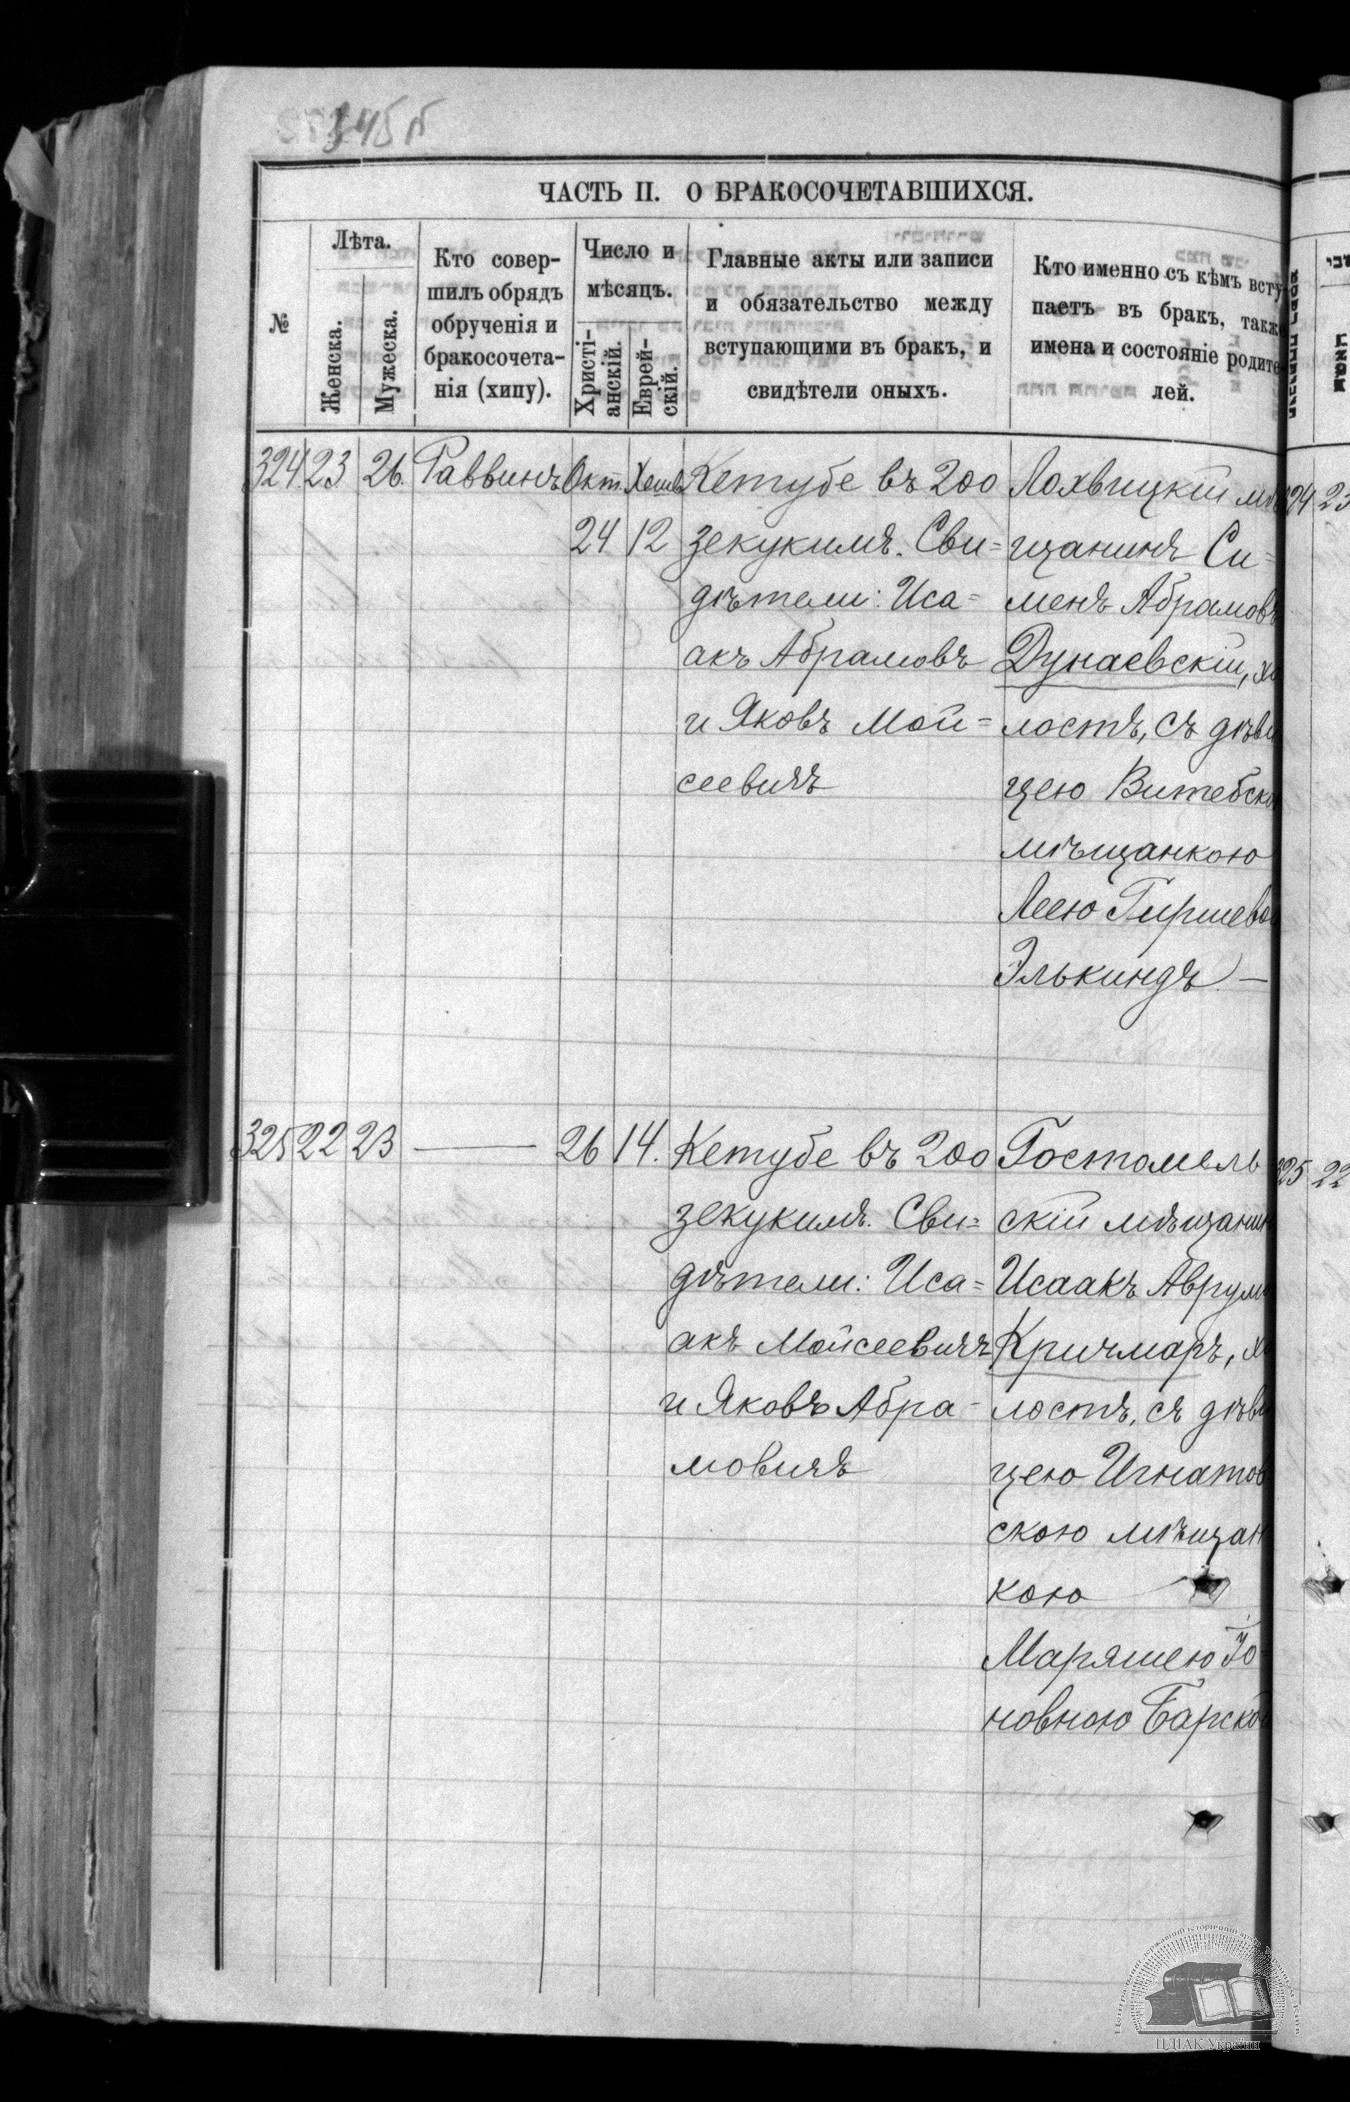 345 п
ЧАСТЬ II. О БРАКОСОЧЕТАВШИХСЯ.
№
Лѣта.
Женска.
Мужеска.
Кто совер-
шилъ обрядъ
обрученія и
бракосочета-
нія (хипу).
Число и
мѣсяцъ.
Христі-
анскій.
Еврей-
скій.
Главные акты или записи
и обязательство между
вступающими въ бракъ, и
свидѣтели оныхъ.
Кто именно съ кѣмъ всту
паетъ въ бракъ, такж
имена и состояніе родите
лей.
324 23 26. Раввинъ Окт. Хешв
24 12
Кетубе въ 200
зекукимъ. Сви=
дѣтели: Иса=
акъ Абрамовъ
и Яковъ Мой=
сеевичъ
Лохвицкій мѣ
щанинъ Си=
менъ Абрамовъ
Дунаевскій, хо
лостъ, съ дѣви
цею Витебско
мѣщанкою
Леею Гиршево
Элькиндъ. —
325 22 23 — 26 14.
Кетубе въ 200
зекукимъ. Сви=
дѣтели: Иса=
акъ Мойсеевичъ
и Яковъ Абра-
мовичъ
Гостомель
скій мѣщанин
Исаакъ Аврумо
Кричмаръ, хо
лостъ, съ дѣви
цею Игнатов
скою мѣщан
кою
Маряшею Іо-
новною Барской
324 23
325 22
ЦДІАК України